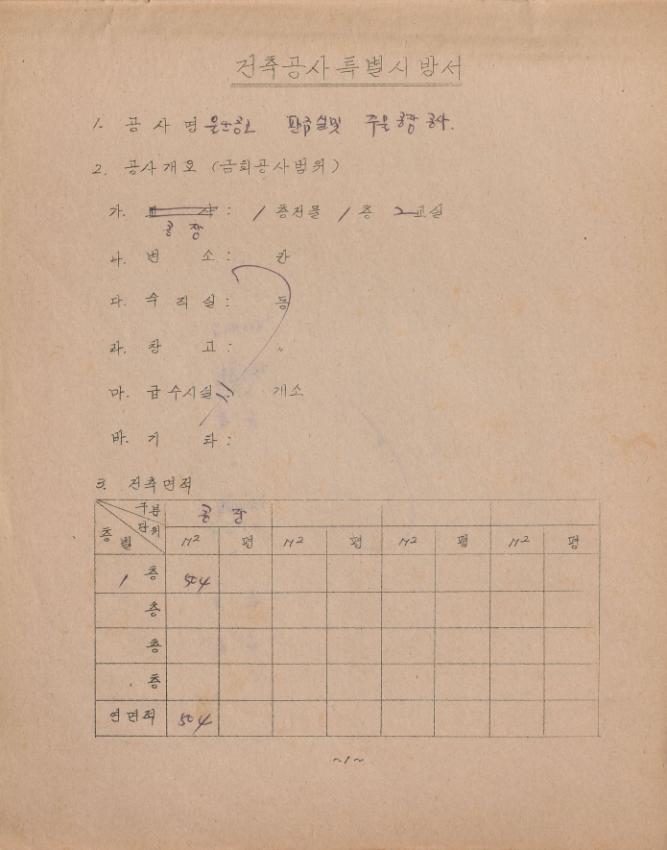 건축공사특별시방서
1. 공사명 울산공고 판금실및 주물공장 공사.
2. 공사개요 (금회공사범위)
가. : 1층건물 1층 2교실
공장
나. 변소 : 칸
다. 숙직실 : 동
라. 창고 : 〃
마. 급수시설 : 개소
바. 기타 :
3. 건축면적
구분 공장
단위
층별 M2 평 M2 평 M2 평 M2 평
1층 504
층
층
층
연면적 504
~1~